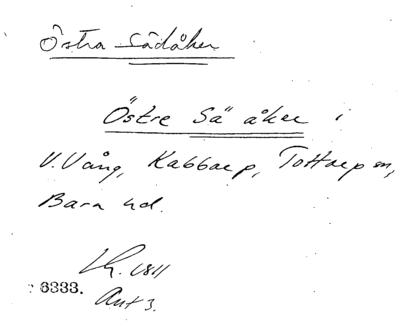 Östra Sädåker
Östre Sä" åker i
V. Vång, Kabbarp, Tottarp sn,
Bara hd.
Lh. 1811
6333.
Akt 3.